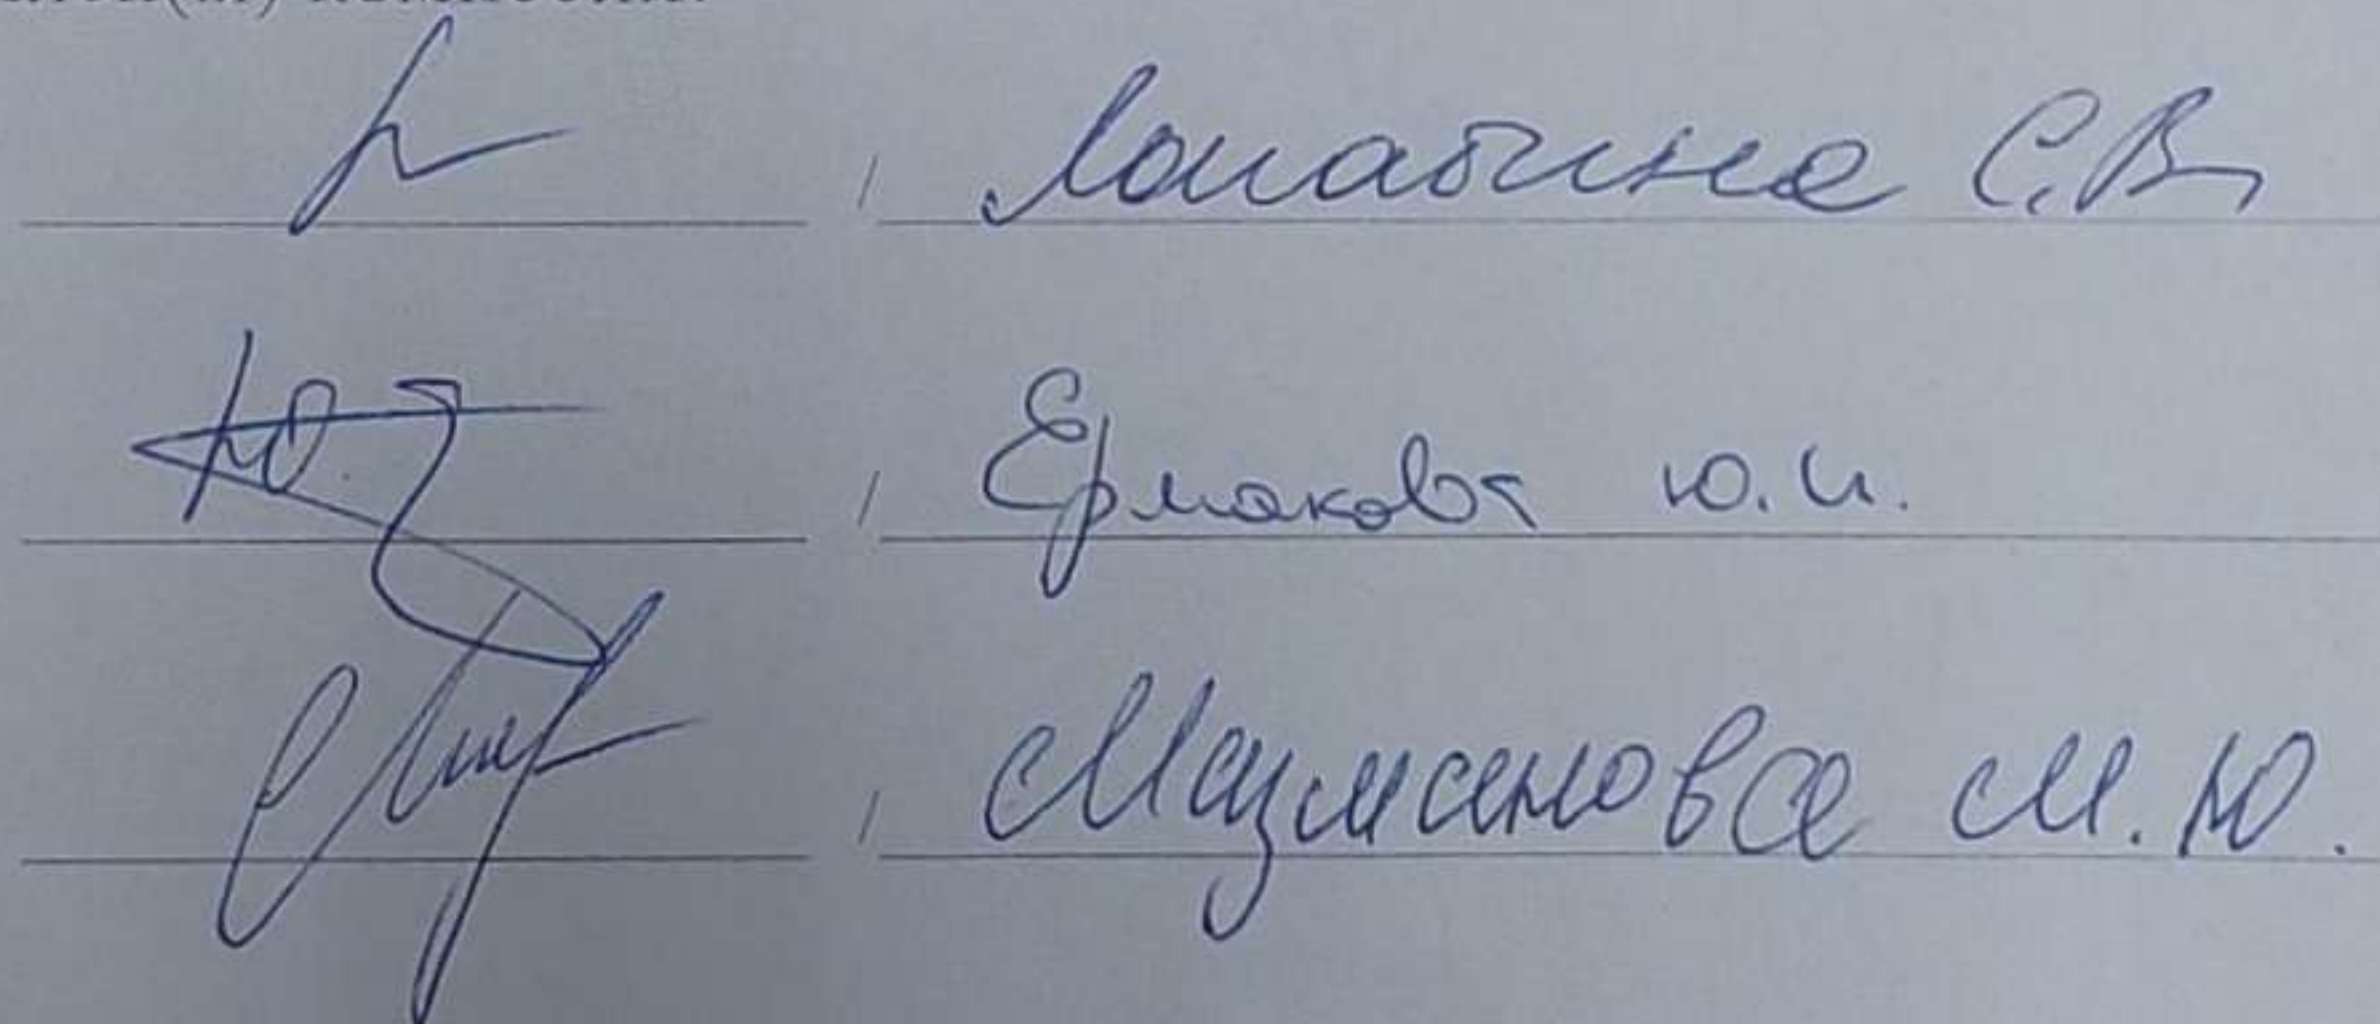 / Лопатина С.В.
/ Ермакова Ю.И.
/ Мазманова М.Ю.